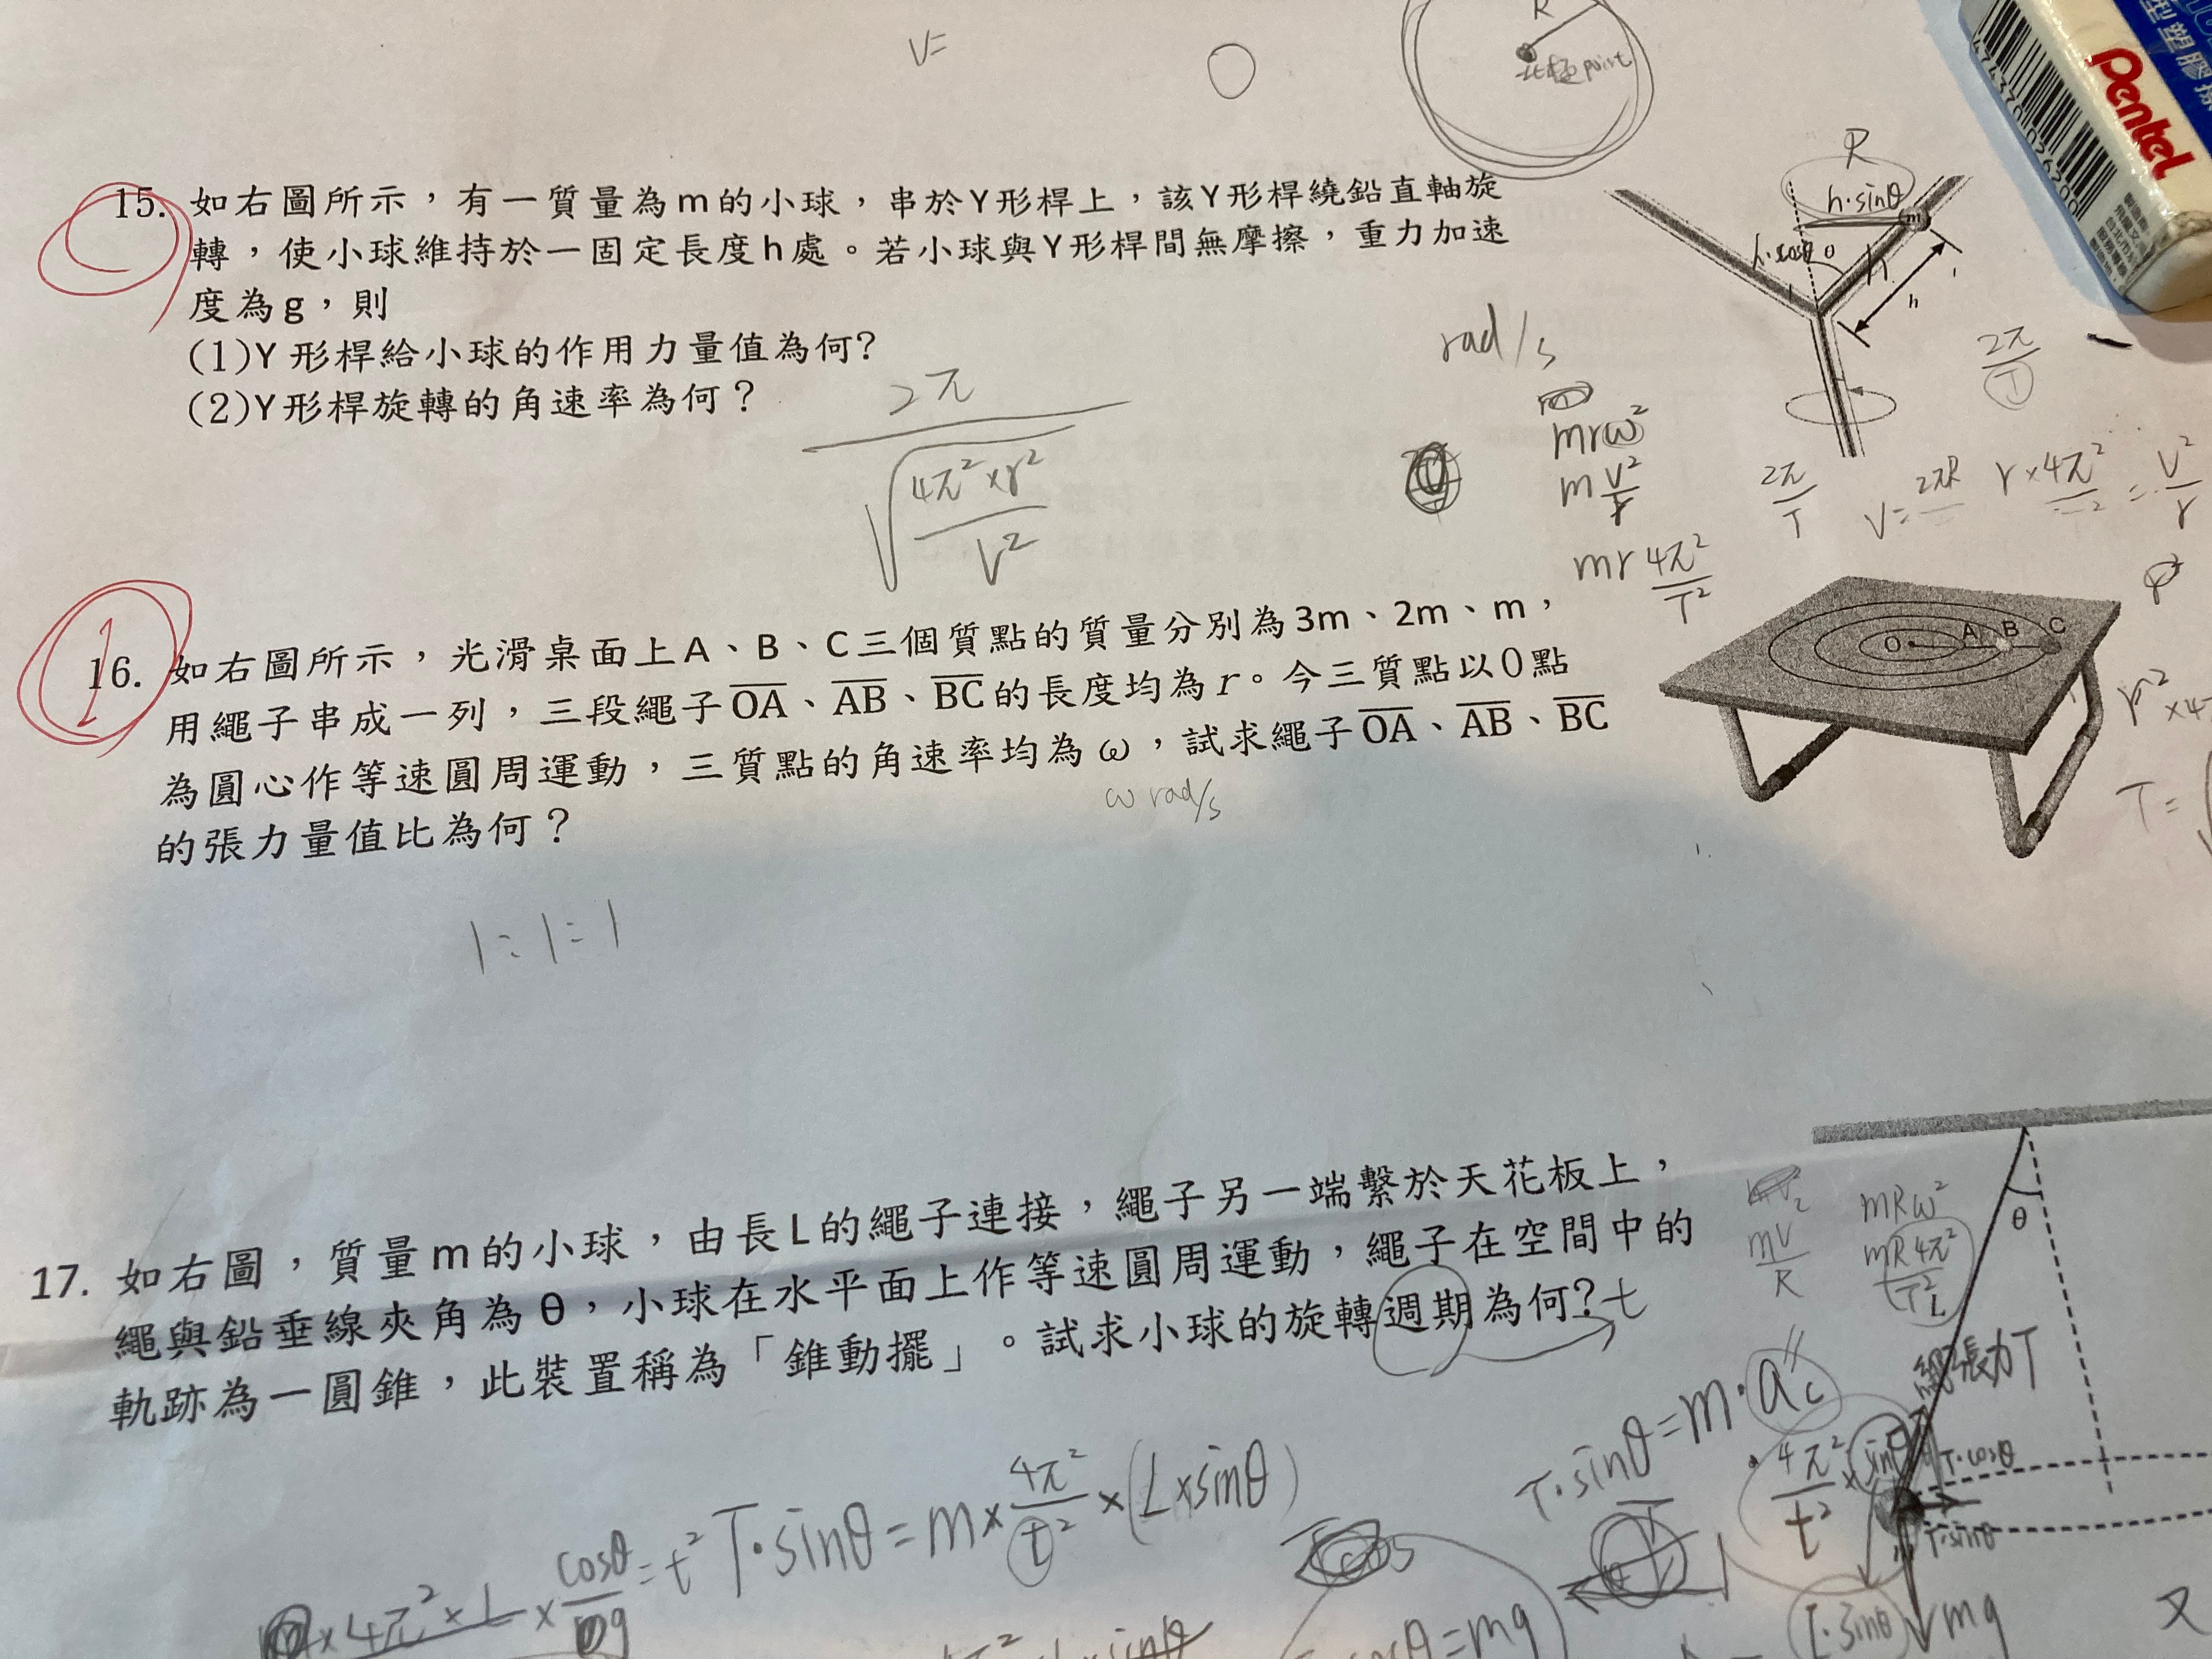 V=
R
北極point
Pentel
型塑膠擦
4743700026200
15. 如右圖所示，有一質量為m的小球，串於Y形桿上，該Y形桿繞鉛直軸旋
轉，使小球維持於一固定長度h處。若小球與Y形桿間無摩擦，重力加速
度為g，則
(1)Y形桿給小球的作用力量值為何?
(2)Y形桿旋轉的角速率為何？
R
h·sinθ
m
h·cosθ
θ
h
h
2π
T
rad/s
2π
4π²×r²
V²
mrω²
m V²/r
mr 4π²/T²
2π/T
V= 2πR
r×4π² = V²/r
16. 如右圖所示，光滑桌面上A、B、C三個質點的質量分別為3m、2m、m，
用繩子串成一列，三段繩子OA、AB、BC的長度均為r。今三質點以O點
為圓心作等速圓周運動，三質點的角速率均為ω，試求繩子OA、AB、BC
的張力量值比為何？
ω rad/s
1:1:1
O A B C
T=
17. 如右圖，質量m的小球，由長L的繩子連接，繩子另一端繫於天花板上，
繩與鉛垂線夾角為θ，小球在水平面上作等速圓周運動，繩子在空間中的
軌跡為一圓錐，此裝置稱為「錐動擺」。試求小球的旋轉週期為何?
t
mV
R
mRω²
mR4π²
T²
θ
繩張力T
T·sinθ=m·ac
4π²/t² × sinθ
T·cosθ
T·sinθ
T·sinθ=m×4π²/t²×(L×sinθ)
×4π²×L×cosθ/mg=t²
cosθ=mg
T·sinθ
mg
又